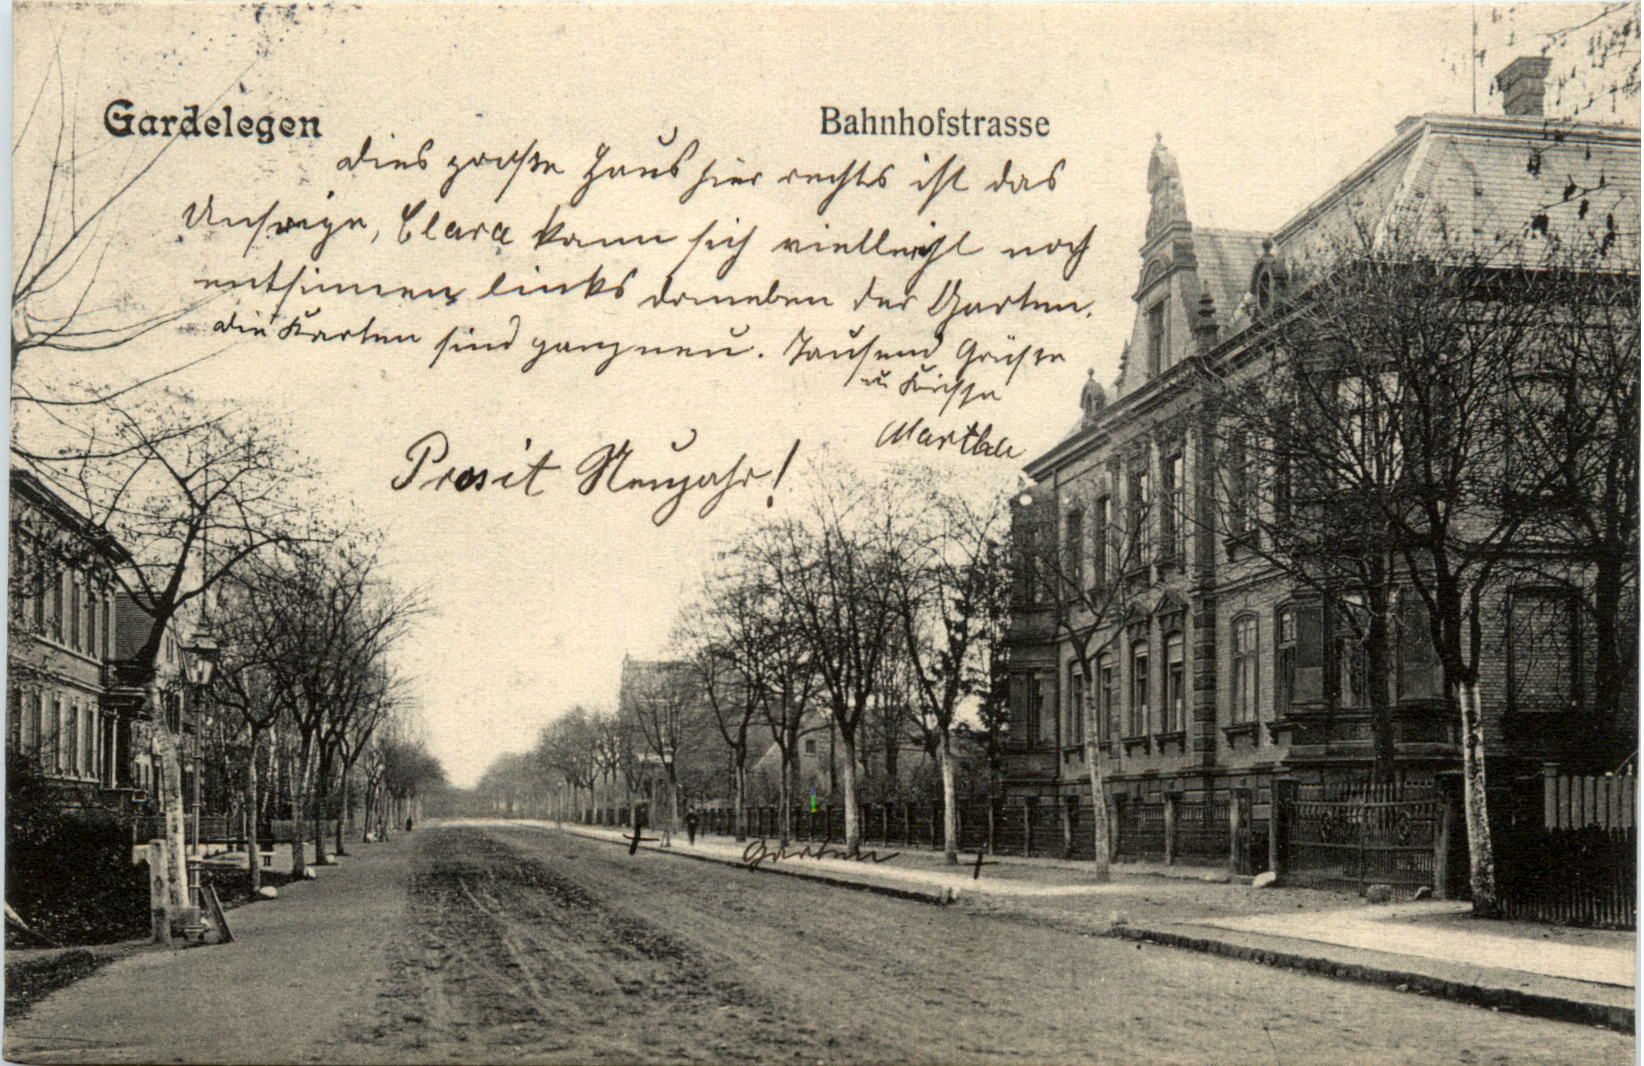 Gardelegen
Bahnhofstrasse
Dies große Haus hier rechts ist das
Unsrige, Clara kann sich vielleicht noch
entsinnen, links daneben der Garten.
Die Karten sind ganz neu. Tausend Grüße
u Küsse
Marthe
Prosit Neujahr!
Garten